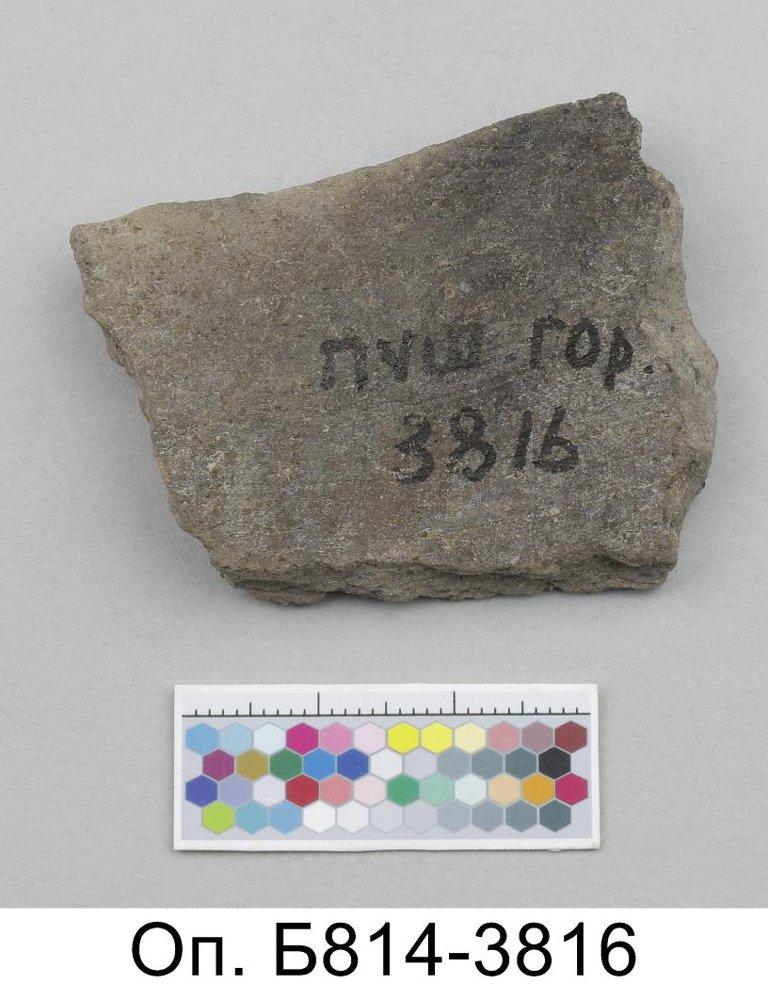 ПУШ. ГОР.
3816
Оп. Б814-3816